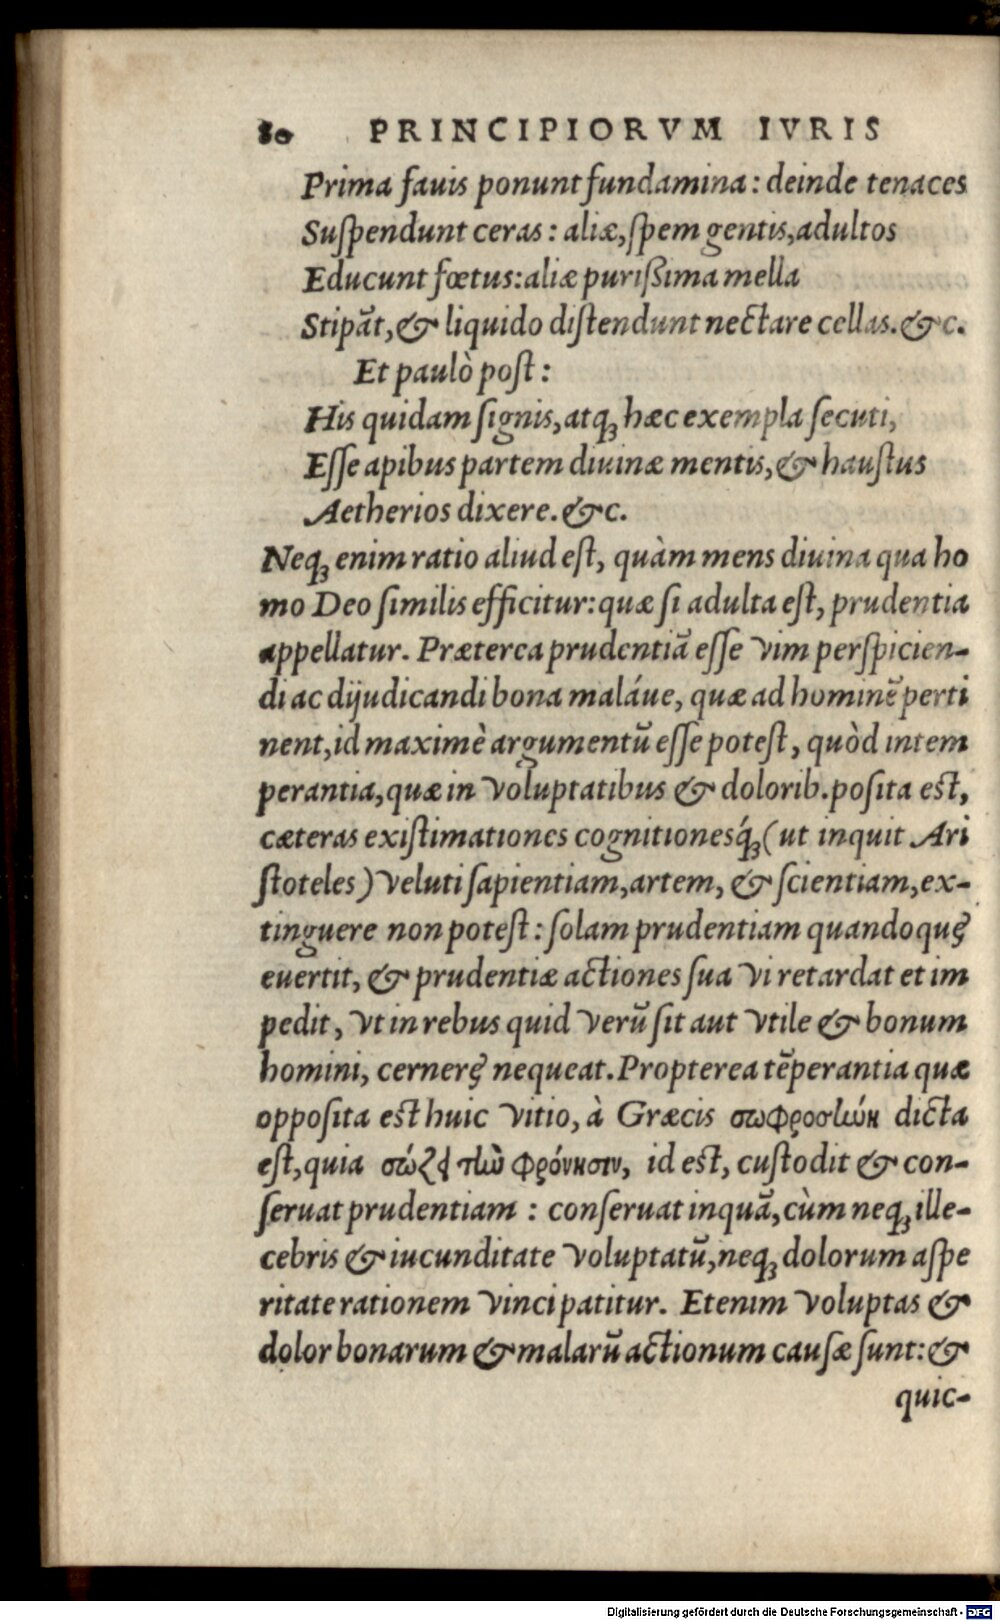 80 PRINCIPIORVM IVRIS
Prima fauis ponunt fundamina: deinde tenaces
Suspendunt ceras: aliæ, spem gentis, adultos
Educunt fœtus: aliæ purißima mella
Stipãt, & liquido distendunt nectare cellas. &c.
Et paulò post:
His quidam signis, atq; hæc exempla secuti,
Esse apibus partem diuinæ mentis, & haustus
Aetherios dixere. &c.
Neq; enim ratio aliud est, quàm mens diuina qua ho
mo Deo similis efficitur: quæ si adulta est, prudentia
appellatur. Præterea prudentiã esse vim perspicien-
di ac dijudicandi bona maláue, quæ ad hominẽ perti
nent, id maximè argumentũ esse potest, quòd intem
perantia, quæ in voluptatibus & dolorib. posita est,
cæteras existimationes cognitionesq́; (ut inquit Ari
stoteles) veluti sapientiam, artem, & scientiam, ex-
tinguere non potest: solam prudentiam quandoque
euertit, & prudentiæ actiones sua vi retardat et im
pedit, vt in rebus quid verũ sit aut vtile & bonum
homini, cernere nequeat. Propterea tẽperantia quæ
opposita est huic vitio, à Græcis σωφροσύνη dicta
est, quia σώζει τὴν φρόνησιν, id est, custodit & con-
seruat prudentiam : conseruat inquã, cùm neq; ille-
cebris & iucunditate voluptatũ, neq; dolorum aspe
ritate rationem vinci patitur. Etenim voluptas &
dolor bonarum & malarũ actionum causæ sunt: &
quic-
Digitalisierung gefördert durch die Deutsche Forschungsgemeinschaft - DFG